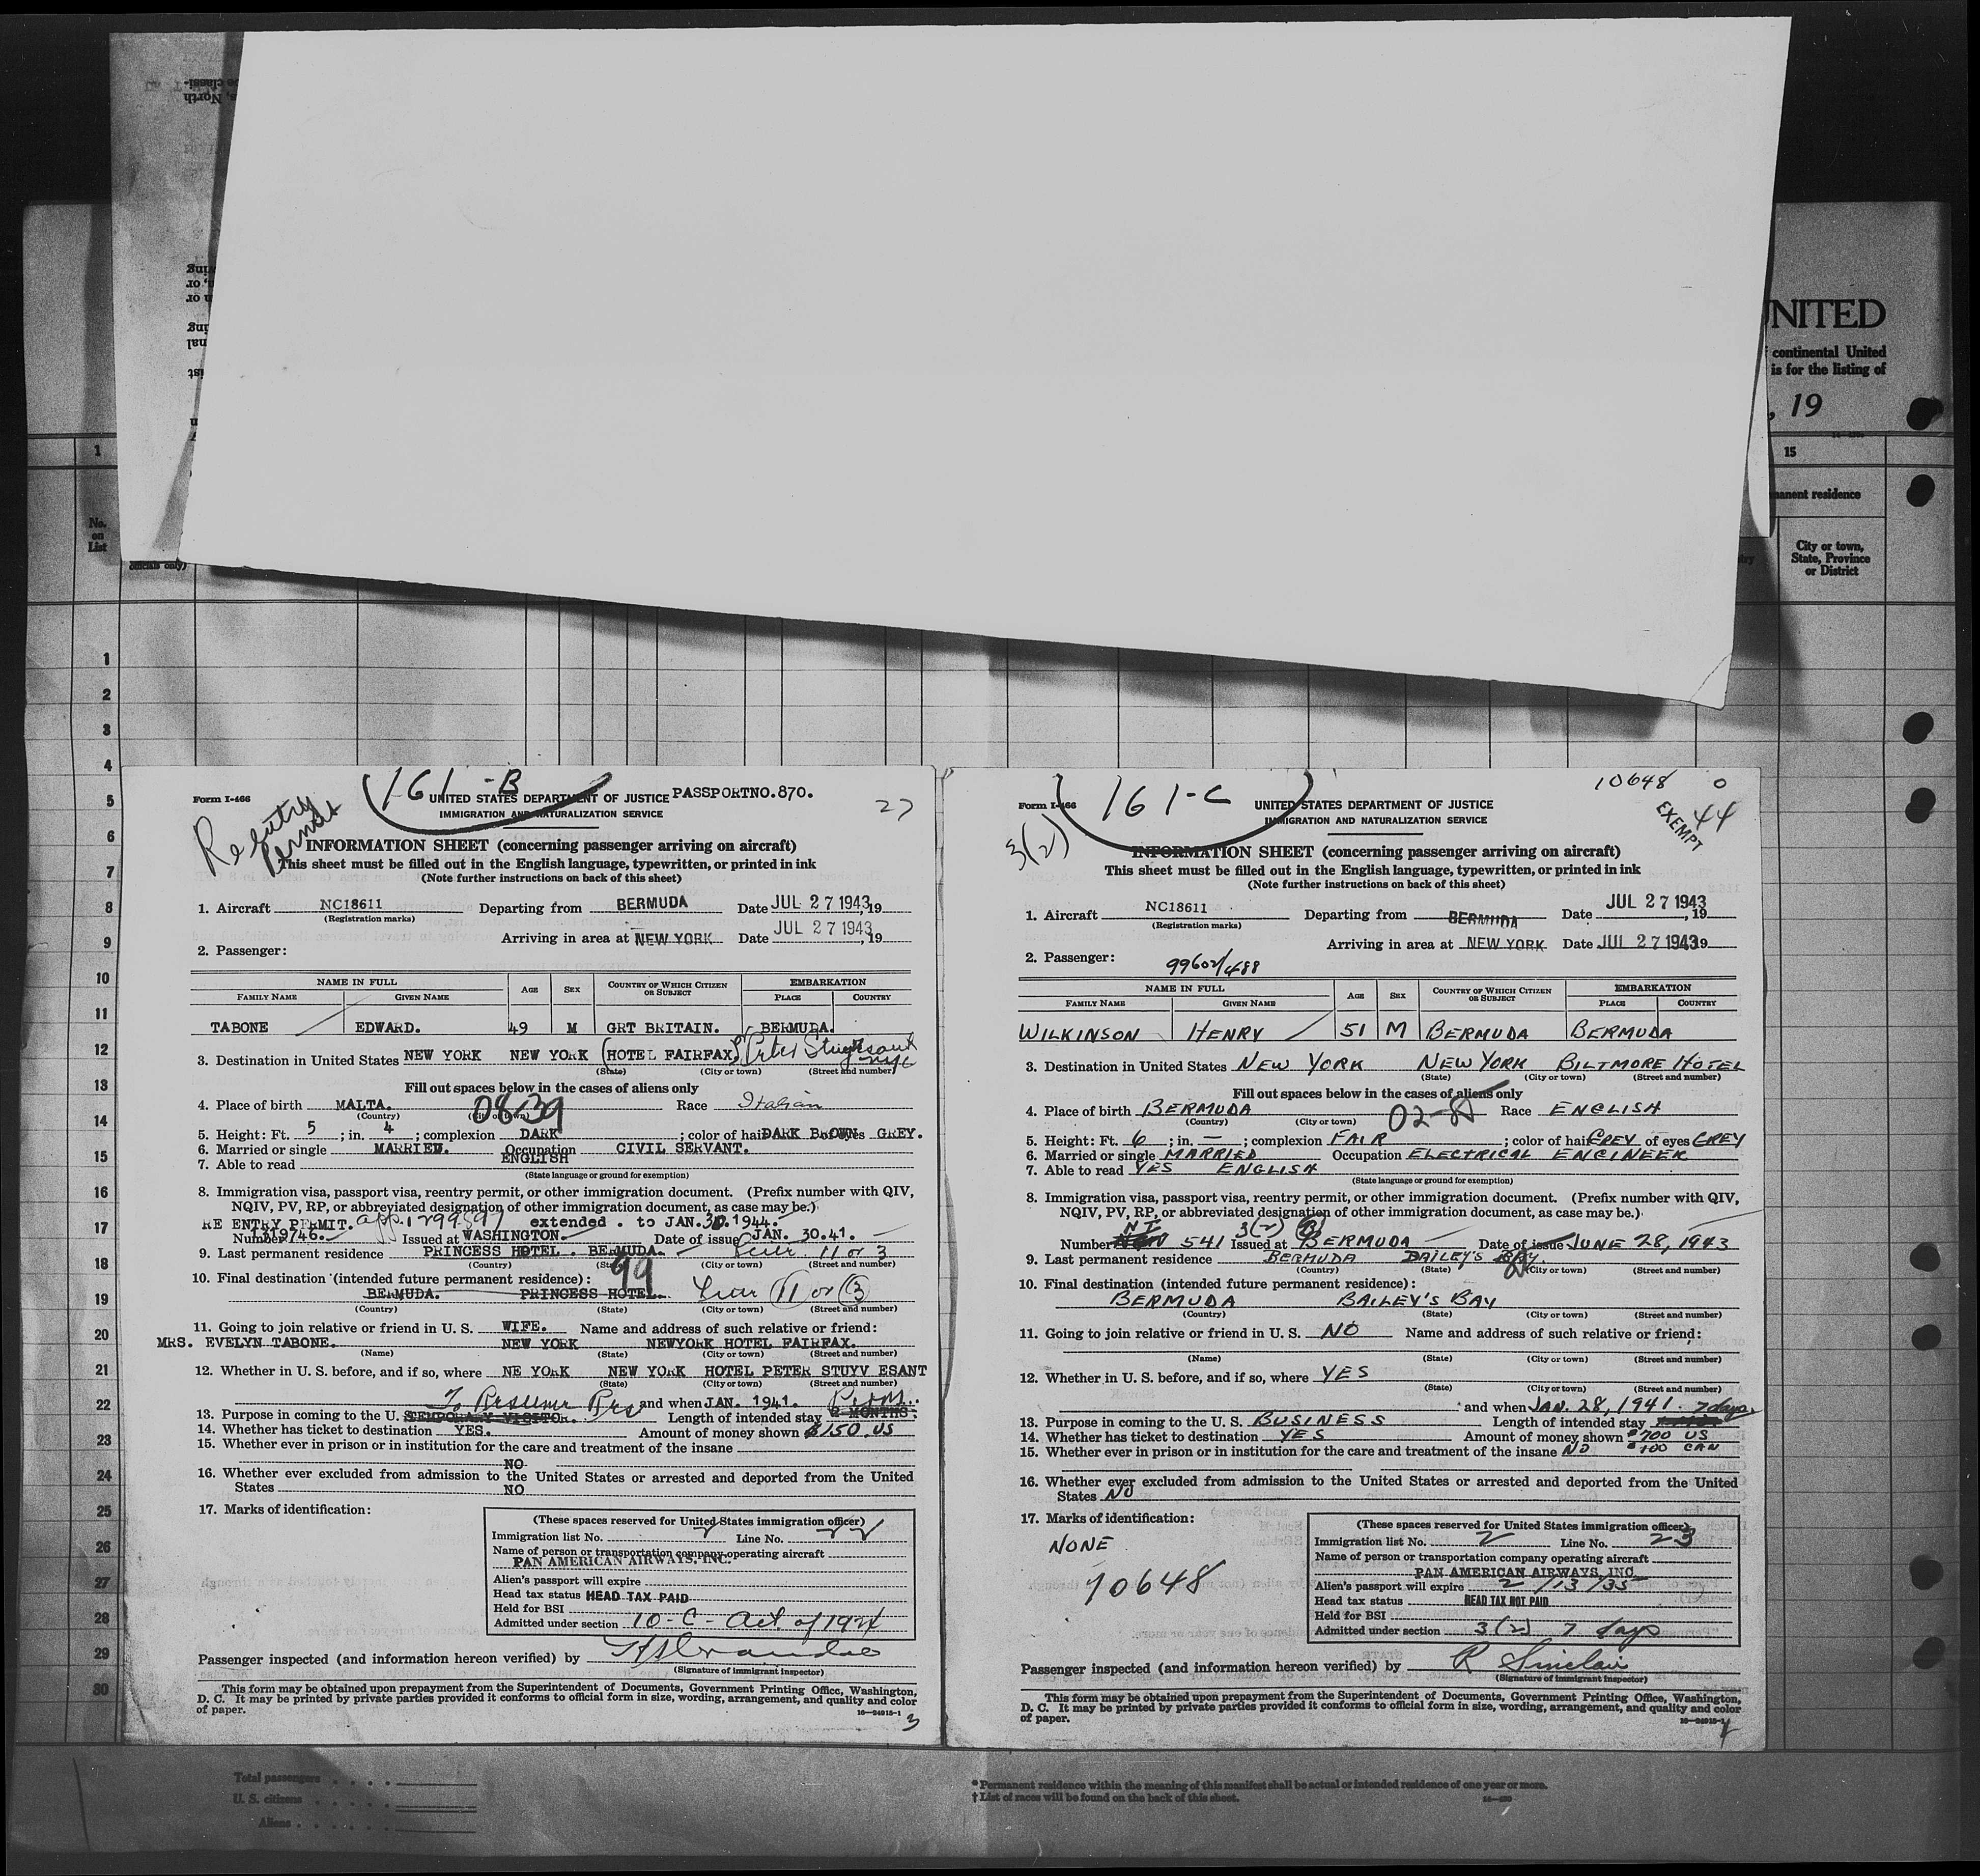 UNITED
continental United
is for the listing of
, 19
1
15
No.
on
List
officials only)
manent residence
City or town,
State, Province
or District
1
2
3
4
5
6
7
8
9
10
11
12
13
14
15
16
17
18
19
20
21
22
23
24
25
26
27
28
29
30
161-B
Form I-466
UNITED STATES DEPARTMENT OF JUSTICE PASSPORTNO.870.
27
IMMIGRATION AND NATURALIZATION SERVICE
Reentry
Permit
INFORMATION SHEET (concerning passenger arriving on aircraft)
This sheet must be filled out in the English language, typewritten, or printed in ink
(Note further instructions on back of this sheet)
1. Aircraft NC18611 Departing from BERMUDA Date JUL 27 1943, 19
(Registration marks)
Arriving in area at NEW YORK Date JUL 27 1943, 19
2. Passenger:
NAME IN FULL AGE SEX COUNTRY OF WHICH CITIZEN OR SUBJECT EMBARKATION
FAMILY NAME GIVEN NAME PLACE COUNTRY
TABONE EDWARD. 49 M GRT BRITAIN. BERMUDA.
3. Destination in United States NEW YORK NEW YORK (HOTEL FAIRFAX) Peter Stuyvesant
(State) (City or town) (Street and number)
Fill out spaces below in the cases of aliens only
4. Place of birth MALTA. 08139 Race Italian
(Country) (City or town)
5. Height: Ft. 5 ; in. 4 ; complexion DARK ; color of hair DARK BROWN of eyes GREY.
6. Married or single MARRIED. Occupation CIVIL SERVANT.
7. Able to read ENGLISH
(State language or ground for exemption)
8. Immigration visa, passport visa, reentry permit, or other immigration document. (Prefix number with QIV,
NQIV, PV, RP, or abbreviated designation of other immigration document, as case may be.)
RE ENTRY PERMIT. app. 1299597 extended . to JAN.30.1944.
Number 1319746. Issued at WASHINGTON. Date of issue JAN. 30.41.
9. Last permanent residence PRINCESS HOTEL . BERMUDA. 11 or 3
(Country) (State) (City or town) (Street and number)
99
10. Final destination (intended future permanent residence):
BERMUDA. PRINCESS HOTEL. 11 or 3
(Country) (State) (City or town) (Street and number)
11. Going to join relative or friend in U. S. WIFE. Name and address of such relative or friend:
MRS. EVELYN TABONE. NEW YORK NEWYORK HOTEL FAIRFAX.
(Name) (State) (City or town) (Street and number)
12. Whether in U. S. before, and if so, where NE YORK NEW YORK HOTEL PETER STUYV ESANT
(State) (City or town) (Street and number)
To Resume Res and when JAN. 1941. Perm.
13. Purpose in coming to the U. S. TEMPORARY VISITOR. Length of intended stay 2 MONTHS.
14. Whether has ticket to destination YES. Amount of money shown $150 US
15. Whether ever in prison or in institution for the care and treatment of the insane
NO
16. Whether ever excluded from admission to the United States or arrested and deported from the United
States NO
17. Marks of identification:
(These spaces reserved for United States immigration officer)
Immigration list No. 2 Line No. 22
Name of person or transportation company operating aircraft
PAN AMERICAN AIRWAYS, INC.
Alien's passport will expire
Head tax status HEAD TAX PAID
Held for BSI
Admitted under section 10-C- Act of 1924
Passenger inspected (and information hereon verified) by
(Signature of immigrant inspector)
This form may be obtained upon prepayment from the Superintendent of Documents, Government Printing Office, Washington,
D. C. It may be printed by private parties provided it conforms to official form in size, wording, arrangement, and quality and color
of paper.
16-24915-1
3
161-C
10648 0
Form I-466
UNITED STATES DEPARTMENT OF JUSTICE
EXEMPT 44
IMMIGRATION AND NATURALIZATION SERVICE
3(2)
INFORMATION SHEET (concerning passenger arriving on aircraft)
This sheet must be filled out in the English language, typewritten, or printed in ink
(Note further instructions on back of this sheet)
1. Aircraft NC18611 Departing from BERMUDA Date JUL 27 1943, 19
(Registration marks)
Arriving in area at NEW YORK Date JUL 27 1943 19
2. Passenger: 99602/488
NAME IN FULL AGE SEX COUNTRY OF WHICH CITIZEN OR SUBJECT EMBARKATION
FAMILY NAME GIVEN NAME PLACE COUNTRY
WILKINSON HENRY 51 M BERMUDA BERMUDA
3. Destination in United States NEW YORK NEW YORK BILTMORE HOTEL
(State) (City or town) (Street and number)
Fill out spaces below in the cases of aliens only
4. Place of birth BERMUDA Race ENGLISH
(Country) (City or town)
5. Height: Ft. 6 ; in. — ; complexion FAIR ; color of hair GREY of eyes GREY
6. Married or single MARRIED Occupation ELECTRICAL ENGINEER
7. Able to read YES ENGLISH
(State language or ground for exemption)
8. Immigration visa, passport visa, reentry permit, or other immigration document. (Prefix number with QIV,
NQIV, PV, RP, or abbreviated designation of other immigration document, as case may be.)
NI 3(2) (B)
Number 541 Issued at BERMUDA Date of issue JUNE 28, 1943
9. Last permanent residence BERMUDA BAILEY'S BAY.
(Country) (State) (City or town) (Street and number)
10. Final destination (intended future permanent residence):
BERMUDA BAILEY'S BAY
(Country) (State) (City or town) (Street and number)
11. Going to join relative or friend in U. S. NO Name and address of such relative or friend:
(Name) (State) (City or town) (Street and number)
12. Whether in U. S. before, and if so, where YES
(State) (City or town) (Street and number)
and when JAN. 28, 1941. 7 days
13. Purpose in coming to the U. S. BUSINESS Length of intended stay
14. Whether has ticket to destination YES Amount of money shown $700 US
15. Whether ever in prison or in institution for the care and treatment of the insane NO $100 CAN
16. Whether ever excluded from admission to the United States or arrested and deported from the United
States NO
17. Marks of identification:
NONE
10648
(These spaces reserved for United States immigration officer)
Immigration list No. 2 Line No. 23
Name of person or transportation company operating aircraft
PAN AMERICAN AIRWAYS, INC.
Alien's passport will expire 2/13/35
Head tax status HEAD TAX NOT PAID
Held for BSI
Admitted under section 3(2) 7 days
Passenger inspected (and information hereon verified) by R Sinclair
(Signature of immigrant inspector)
This form may be obtained upon prepayment from the Superintendent of Documents, Government Printing Office, Washington,
D. C. It may be printed by private parties provided it conforms to official form in size, wording, arrangement, and quality and color
of paper.
16-24915-1
Total passengers
U. S. citizens
Aliens
* Permanent residence within the meaning of this manifest shall be actual or intended residence of one year or more.
† List of races will be found on the back of this sheet.